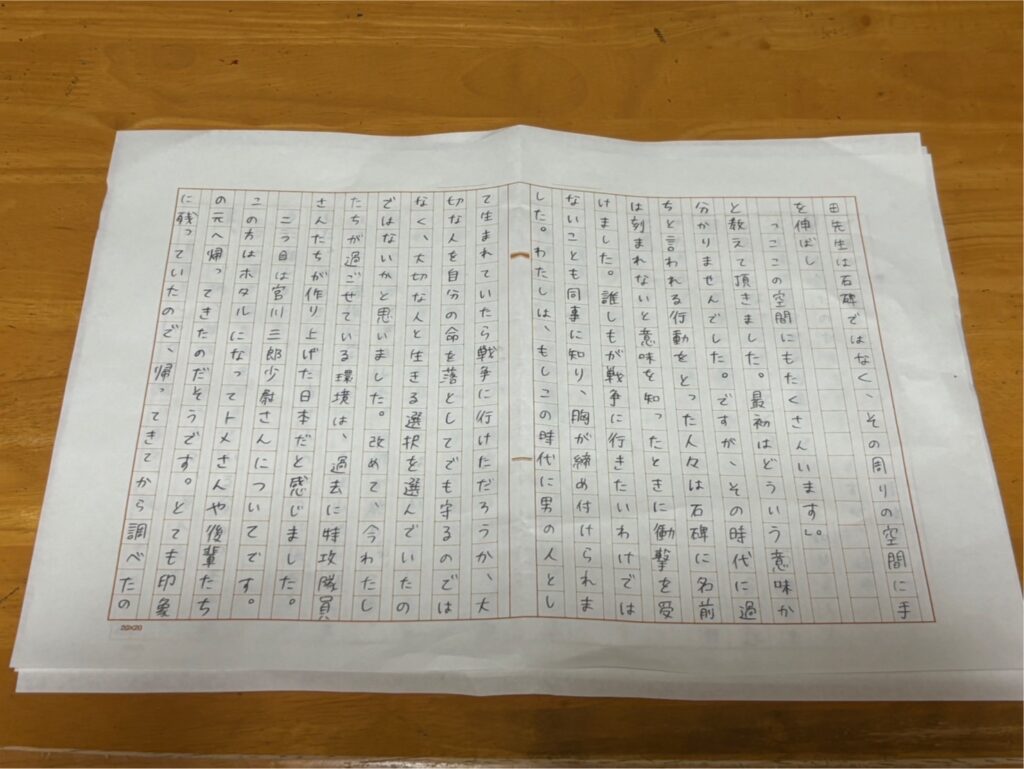 田先生は石碑ではなく、その周りの空間に手
を伸ばし、
「ここの空間にもたくさんいます。」
と教えて頂きました。最初はどういう意味か
分かりませんでした。ですが、その時代に過
ちと言われる行動をとった人々は石碑に名前
は刻まれないと意味を知ったときに衝撃を受
けました。誰しもが戦争に行きたいわけでは
ないことも同事に知り、胸が締め付けられま
した。わたしは、もしこの時代に男の人とし
て生まれていたら戦争に行けただろうか、大
切な人を自分の命を落としてでも守るのでは
なく、大切な人と生きる選択を選んでいたの
ではないかと思いました。改めて、今わたし
たちが過ごせている環境は、過去に特攻隊員
さんたちが作り上げた日本だと感じました。
二つ目は宮川三郎少尉さんについてです。
この方はホタルになってトメさんや後輩たち
の元へ帰ってきたのだそうです。とても印象
に残っていたので、帰ってきてから調べたの
20×20